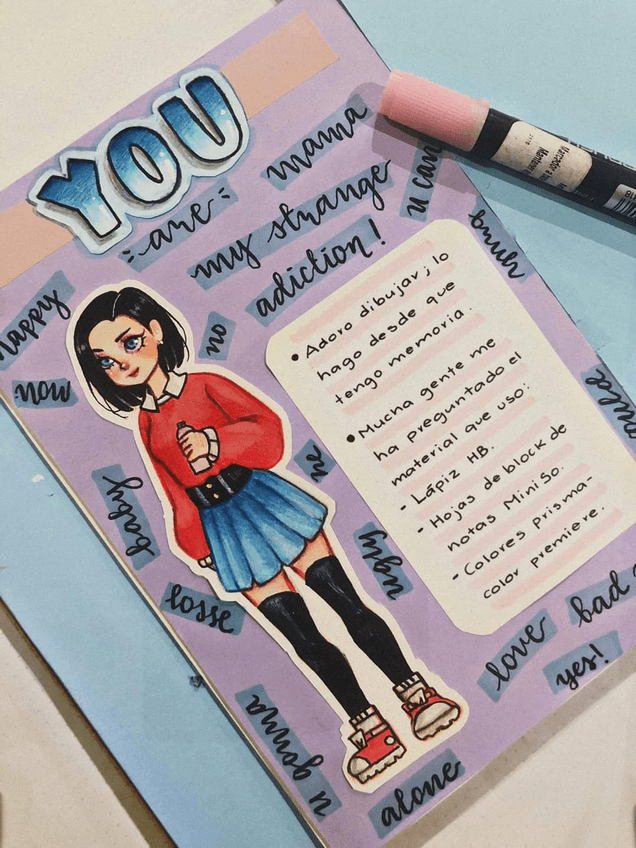 YOU
are
mama
my strange
adiction!
u can
happy
now
no
baby
losse
me
ugly
u gonna
u
alone
love
bad
yes!
• Adoro dibujar; lo
hago desde que
tengo memoria.
• Mucha gente me
ha preguntado el
material que uso:
- Lápiz HB.
- Hojas de block de
notas MiniSo.
- Colores prisma-
color premiere.